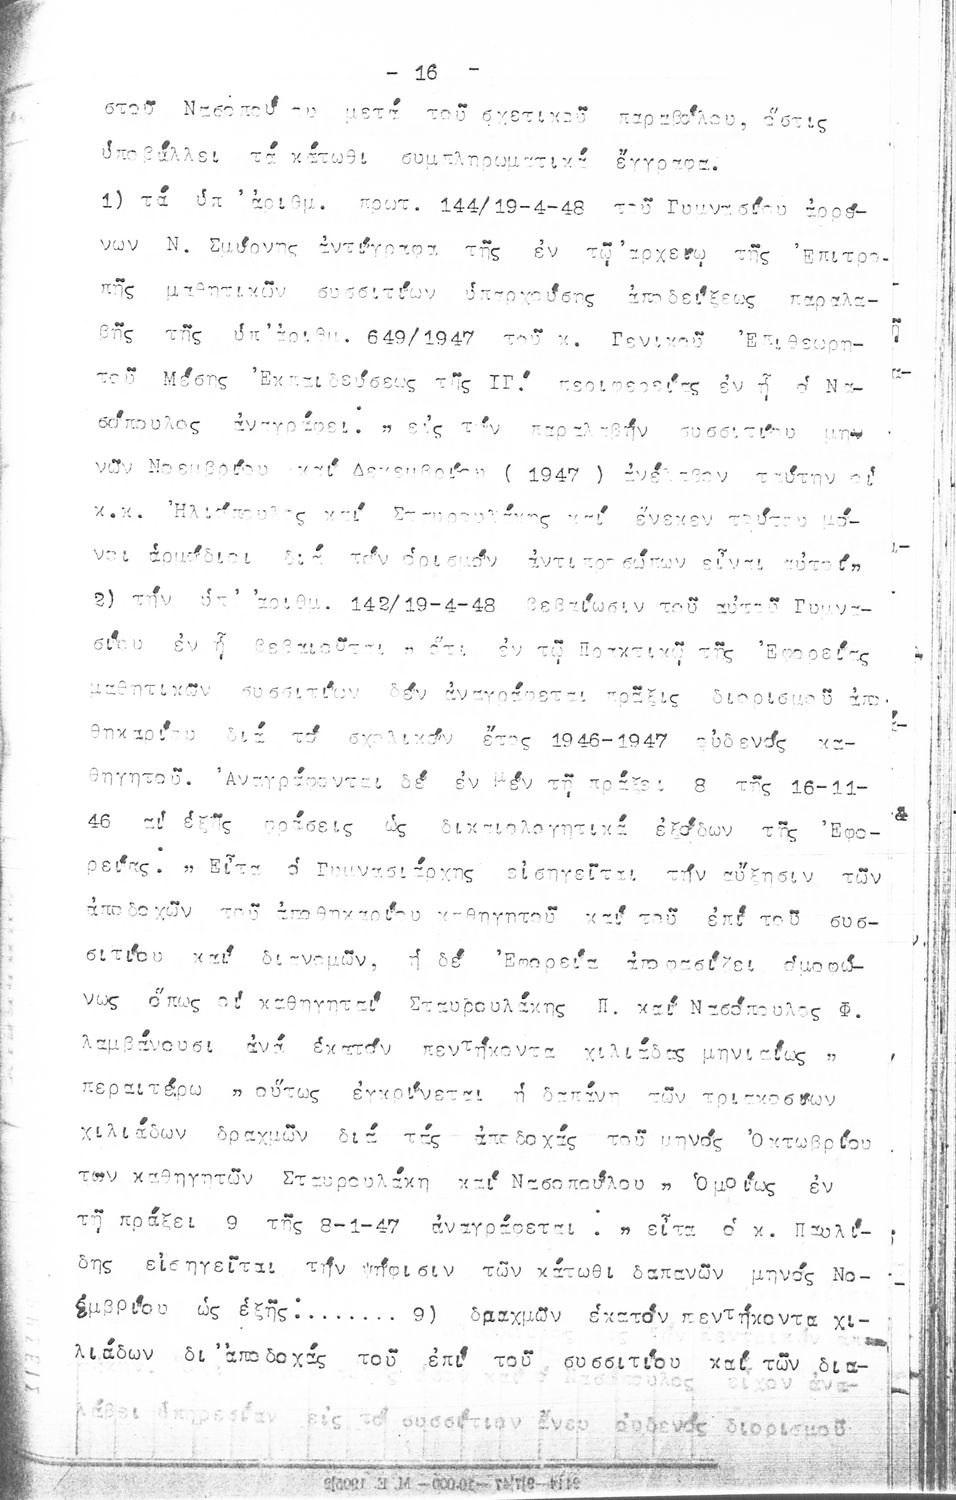 - 16 -
στοῦ Νασοπούλου μετά τοῦ σχετικοῦ παραβόλου, ὅστις
ὑποβάλλει τά κάτωθι συμπληρωματικά ἔγγραφα.
1) τά ὑπ 'ἀριθμ. πρωτ. 144/19-4-48 τοῦ Γυμνασίου ἀρρέ-
νων Ν. Σμύρνης ἀντίγραφα τῆς ἐν τῷ ἀρχείῳ τῆς 'Επιτρο-
πῆς μαθητικῶν συσσιτίων ὑπαρχούσης ἀποδείξεως παραλα-
βῆς τῆς ὑπ'ἀριθμ. 649/1947 τοῦ κ. Γενικοῦ 'Επιθεωρη-
τοῦ Μέσης 'Εκπαιδεύσεως τῆς ΙΓ΄. περιφερείας ἐν ᾗ ὁ Να-
σόπουλος ἀναγράφει: „ εἰς τήν παραλαβήν συσσιτίου μη-
νῶν Νοεμβρίου καί Δεκεμβρίου ( 1947 ) ἀνέλαβον ταύτην οἱ
κ.κ. 'Ηλιόπουλος καί Σταυρουλάκης καί ἕνεκεν τούτου μό-
νοι ἁρμόδιοι διά τόν ὁρισμόν ἀντιπροσώπων εἶναι αὐτοί„
2) τήν ὑπ' ἀριθμ. 142/19-4-48 βεβαίωσιν τοῦ αὐτοῦ Γυμνα-
σίου ἐν ᾗ βεβαιοῦται „ ὅτι ἐν τῷ Πρακτικῷ τῆς 'Εφορείας
μαθητικῶν συσσιτίων δέν ἀναγράφεται πρᾶξις διορισμοῦ ἀπο-
θηκαρίου διά τό σχολικόν ἔτος 1946-1947 οὐδενός κα-
θηγητοῦ. 'Αναγράφονται δέ ἐν μέν τῇ πράξει 8 τῆς 16-11-
46 αἱ ἑξῆς φράσεις ὡς δικαιολογητικά ἐξόδων τῆς 'Εφο-
ρείας: „ Εἶτα ὁ Γυμνασιάρχης εἰσηγεῖται τήν αὔξησιν τῶν
ἀποδοχῶν τοῦ ἀποθηκαρίου καθηγητοῦ καί τοῦ ἐπί τοῦ συσ-
σιτίου καί διανομῶν, ἡ δέ 'Εφορεία ἀποφασίζει ὁμοφώ-
νως ὅπως οἱ καθηγηταί Σταυρουλάκης Π. καί Νασόπουλος Φ.
λαμβάνουσι ἀνά ἑκατόν πεντήκοντα χιλιάδας μηνιαίως „
περαιτέρω „ οὕτως ἐγκρίνεται ἡ δαπάνη τῶν τριακοσίων
χιλιάδων δραχμῶν διά τάς ἀποδοχάς τοῦ μηνός 'Οκτωβρίου
τῶν καθηγητῶν Σταυρουλάκη καί Νασοπούλου „ 'Ομοίως ἐν
τῇ πράξει 9 τῆς 8-1-47 ἀναγράφεται : „ εἶτα ὁ κ. Παυλί-
δης εἰσηγεῖται τήν ψήφισιν τῶν κάτωθι δαπανῶν μηνός Νο-
εμβρίου ὡς ἑξῆς:........ 9) δραχμῶν ἑκατόν πεντήκοντα χι-
λιάδων δι'ἀποδοχάς τοῦ ἐπί τοῦ συσσιτίου καί τῶν δια-
Νασόπουλος εἶχον ἀνα-
λάβει ὑπηρεσίαν εἰς τό συσσίτιον ἄνευ οὐδενός διορισμοῦ